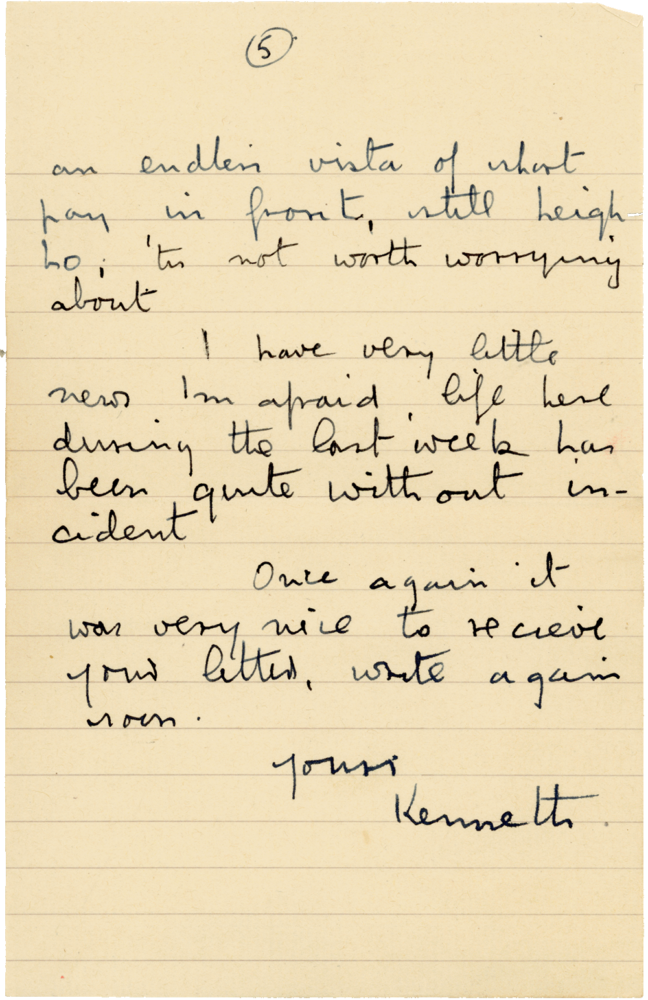 5
an endless vista of short
pay in front, still heigh-
ho, 'tis not worth worrying
about
I have very little
news I'm afraid, life here
during the last week has
been quite without in-
cident
Once again it
was very nice to recieve
your letter, write again
soon.
Yours
Kenneth.